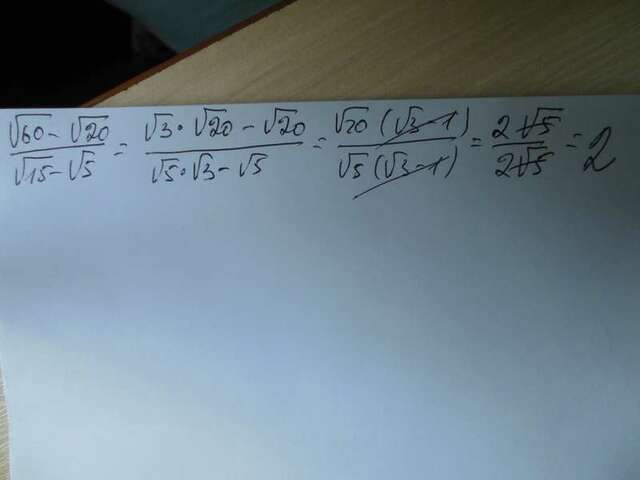 (√60 - √20)/(√15 - √5) = (√3 · √20 - √20)/(√5 · √3 - √5) = (√20 (√3 - 1))/(√5 (√3 - 1)) = (2√5)/(2√5) = 2